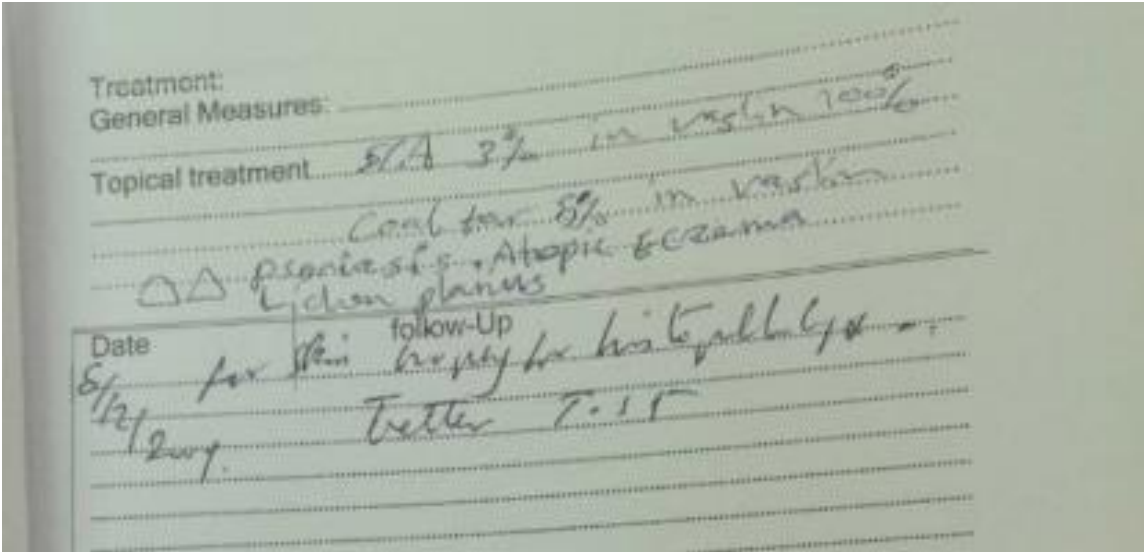 Treatment:
General Measures:
Topical treatment S/A 3% in vaslin 100%
Coal tar 5% in vaslin
△△ Psoriasis. Atopic Eczema
Lichen planus
Date follow-Up
8/12/ for skin for
better